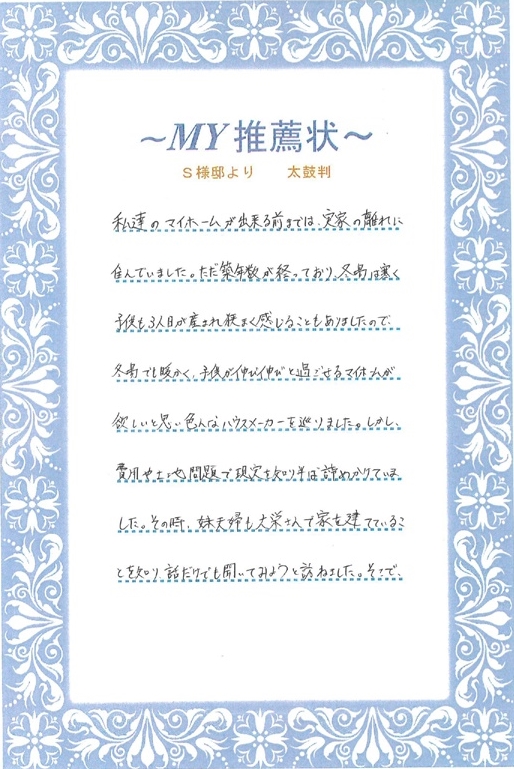 ～MY推薦状～
S様邸より 太鼓判
私達のマイホームが出来る前までは、実家の離れに
住んでいました。ただ築年数が経っており、冬場は寒く
子供も3人目が産まれ狭まく感じることもありましたので、
冬場でも暖かく、子供が伸び伸びと過ごせるマイホームが
欲しいと思い色んなハウスメーカーを巡りました。しかし、
費用や土地問題で現実を知り半ば諦めかけていま
した。その時、妹夫婦も大栄さんで家を建てているこ
とを知り、話だけでも聞いてみようと訪ねました。そこで、